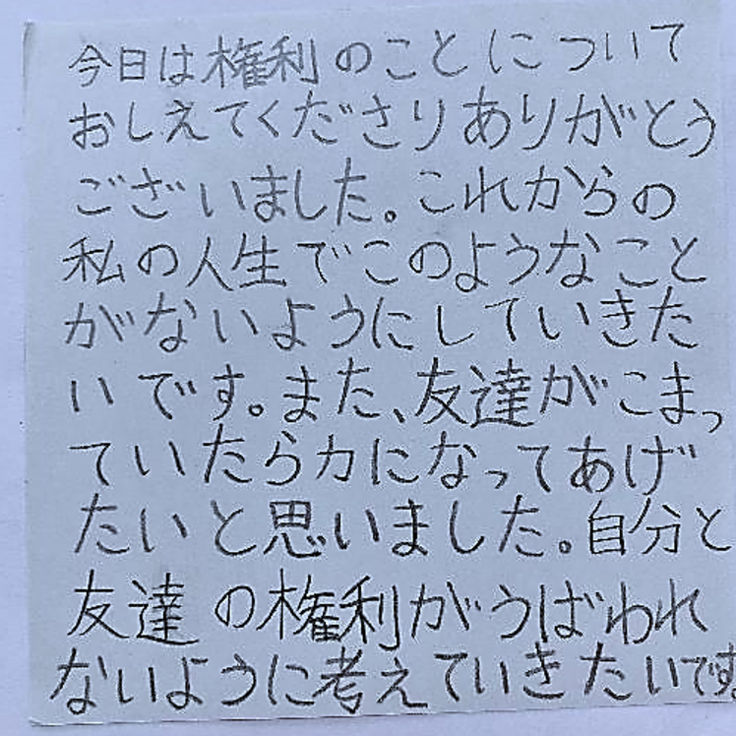 今日は権利のことについて
おしえてくださりありがとう
ございました。これからの
私の人生でこのようなこと
がないようにしていきた
いです。また、友達がこまっ
ていたら力になってあげ
たいと思いました。自分と
友達の権利がうばわれ
ないように考えていきたいです。